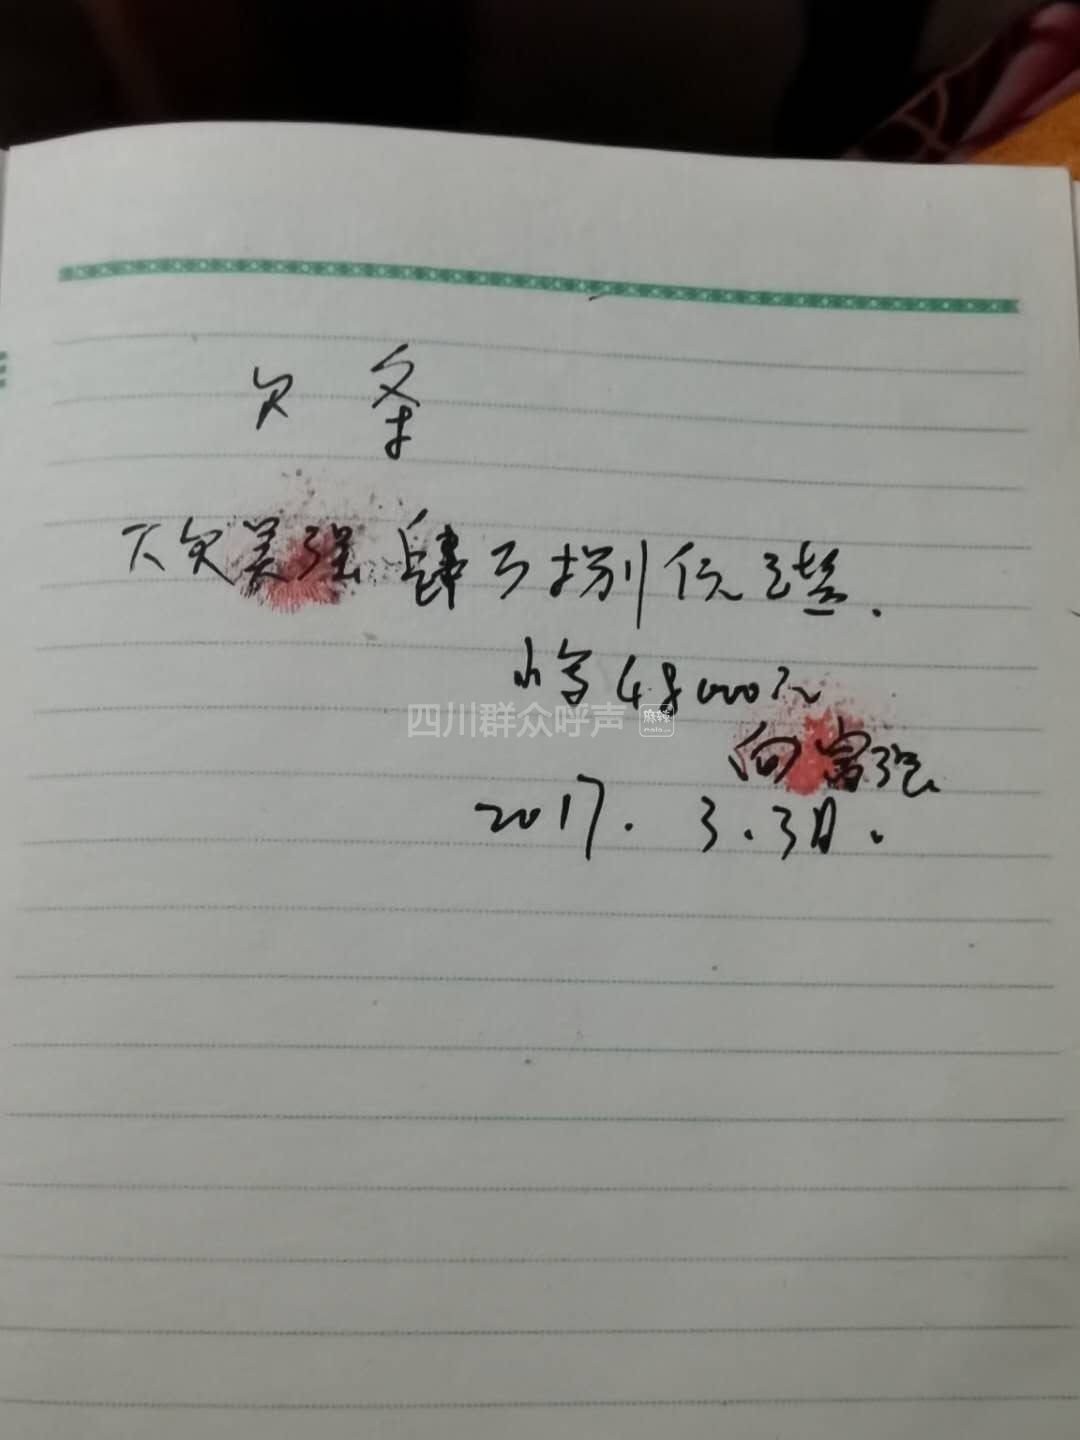 欠条
下欠吴强肆万捌仟元整.
小写48000元
四川群众呼声 麻辣
向富强
2017.3.3日.